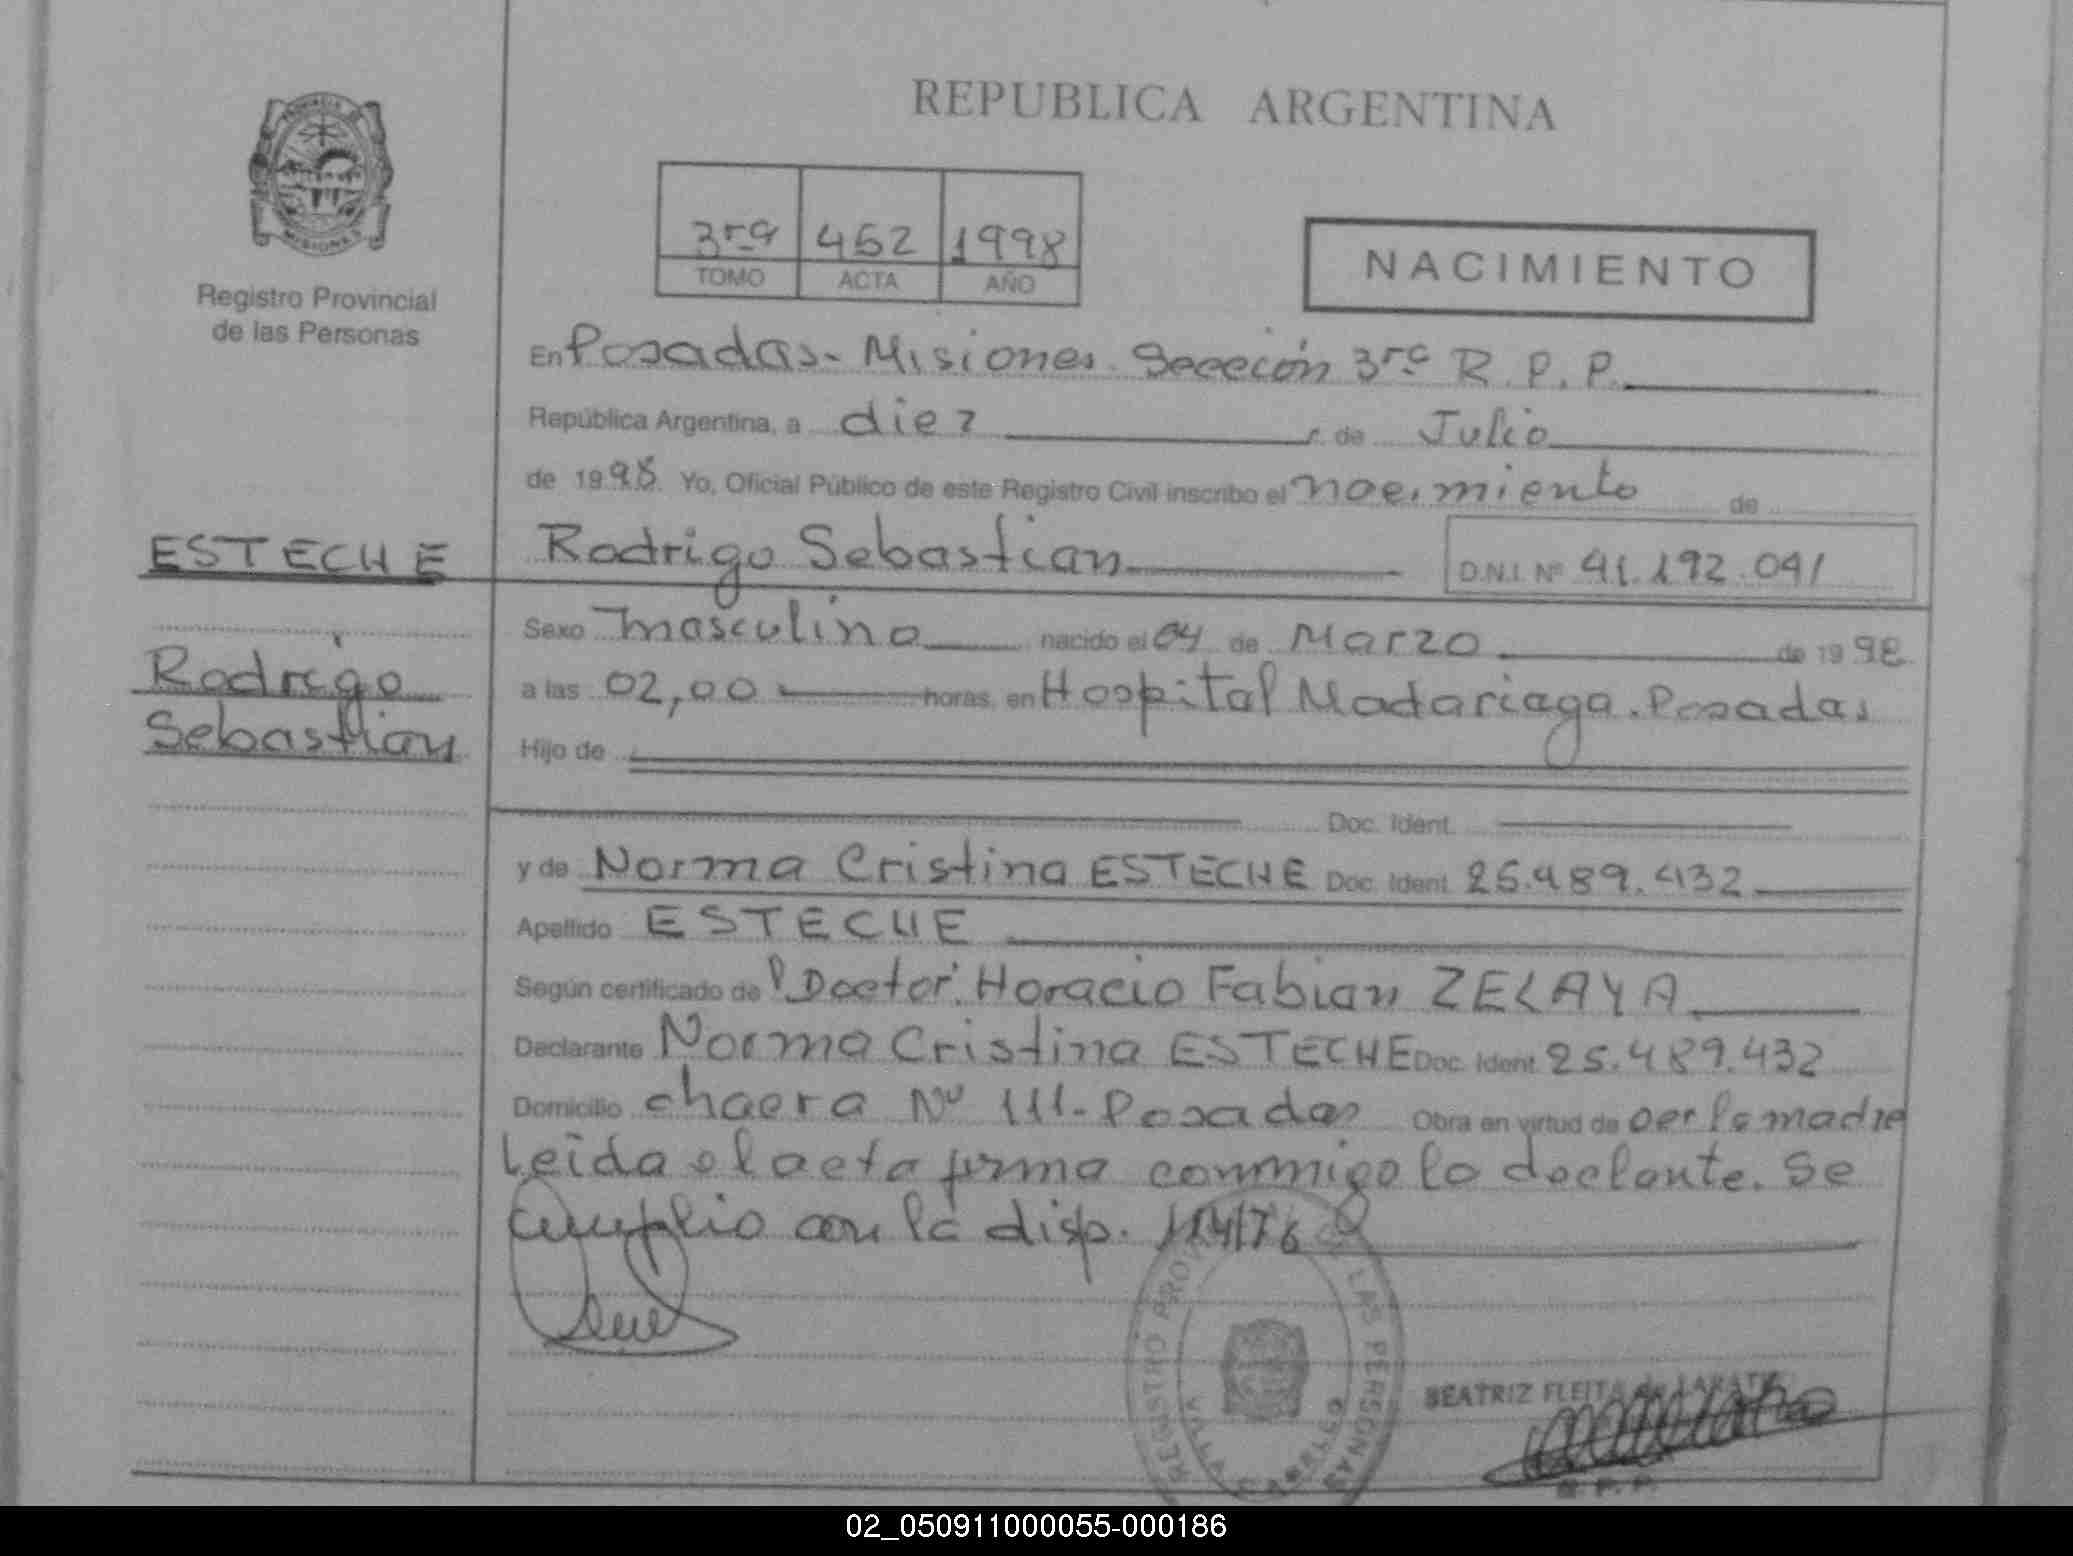 REPUBLICA ARGENTINA
3ra 462 1998
TOMO ACTA AÑO
NACIMIENTO
PROVINCIA DE
MISIONES
Registro Provincial
de las Personas
En Posadas - Misiones. Sección 3ra R. P. P.
República Argentina, a diez de Julio
de 1998. Yo, Oficial Público de este Registro Civil inscribo el nacimiento de
ESTECHE
Rodrigo Sebastian
D.N.I. Nº 41.192.041
Sexo masculino nacido el 04 de Marzo de 1998
Rodrigo
Sebastian
a las 02,00 horas, en Hospital Madariaga. Posadas
Hijo de
Doc. Ident.
y de Norma Cristina ESTECHE Doc. Ident. 25.489.432
Apellido ESTECHE
Según certificado de Doctor: Horacio Fabian ZELAYA
Declarante Norma Cristina ESTECHE Doc. Ident. 25.489.432
Domicilio chacra Nº 111 - Posadas Obra en virtud de ser la madre
Leida el acta firma conmigo la declante. Se
cumplio con la disp. 114/76
REGISTRO PROVINCIAL DE LAS PERSONAS
VILLA CABELLO
BEATRIZ FLEITA de ZARATE
R. P. P.
02_050911000055-000186